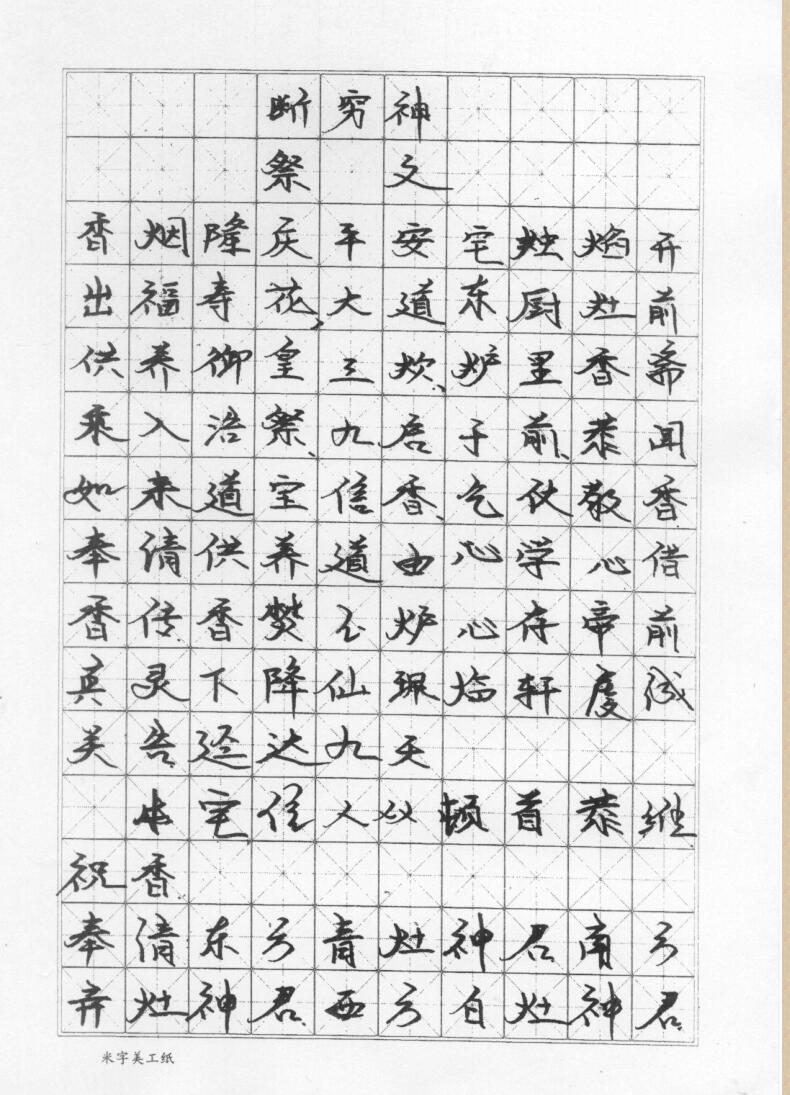 断穷神
祭文
香烟降庆平安宅烛焰开
出福寿花大道东厨灶前
供养御皇三炊炉里香斋
乘入浩祭九启于前恭闻
如来道宝信香气伏敬香
奉请供养道由心学心借
香传香焚玉炉心存帝前
真灵下降仙班临轩虔诚
关告迳达九天
本宅信人以顿首恭维
祝香
奉请东方青灶神君南方
赤灶神君西方白灶神君